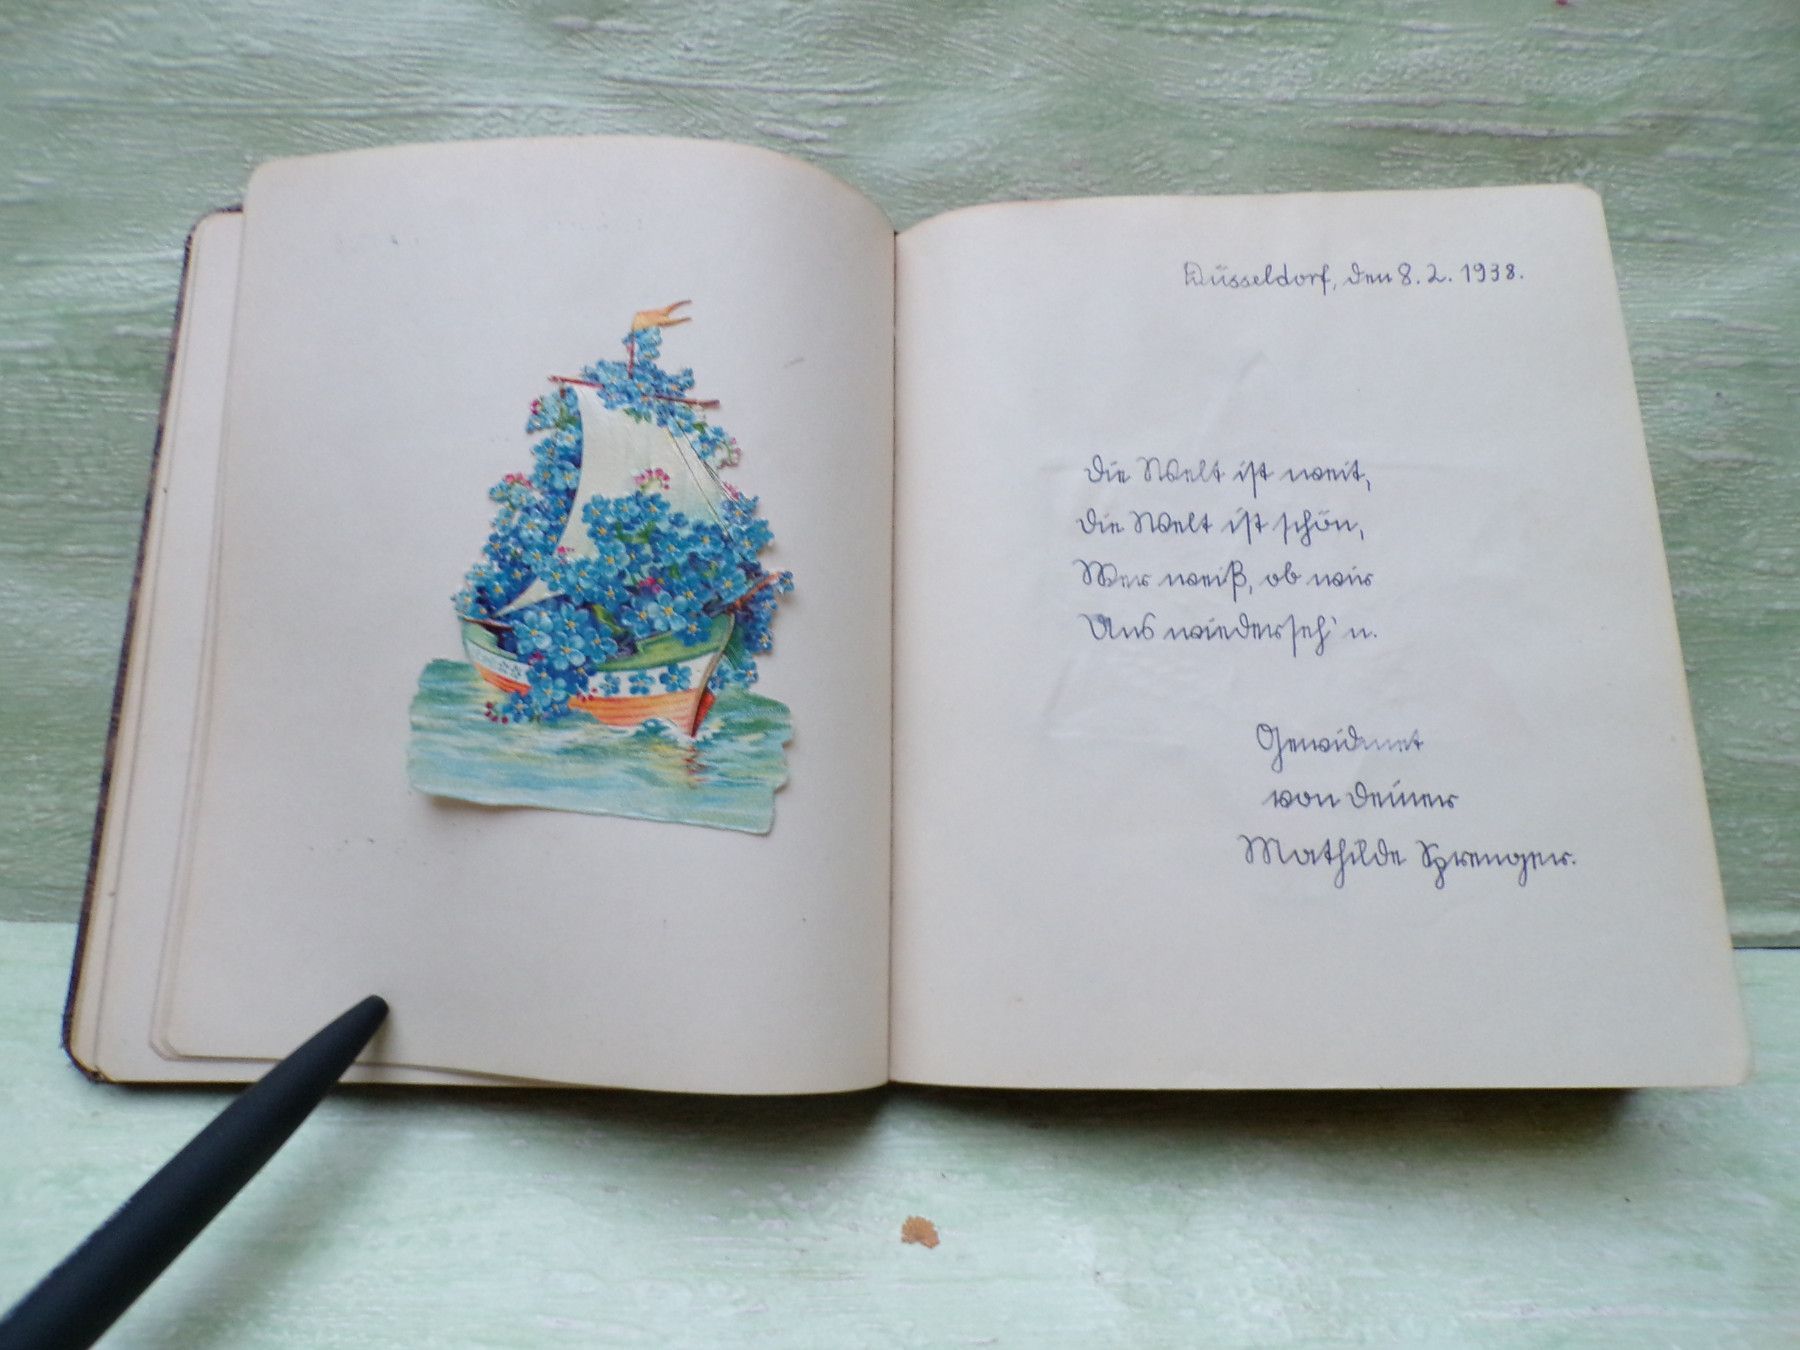 Düsseldorf, den 8.2.1938.
Die Welt ist weit,
die Welt ist schön,
Wer weiß, ob wir
Uns wiederseh'n.
Gewidmet
von deiner
Mathilde Sprenger.